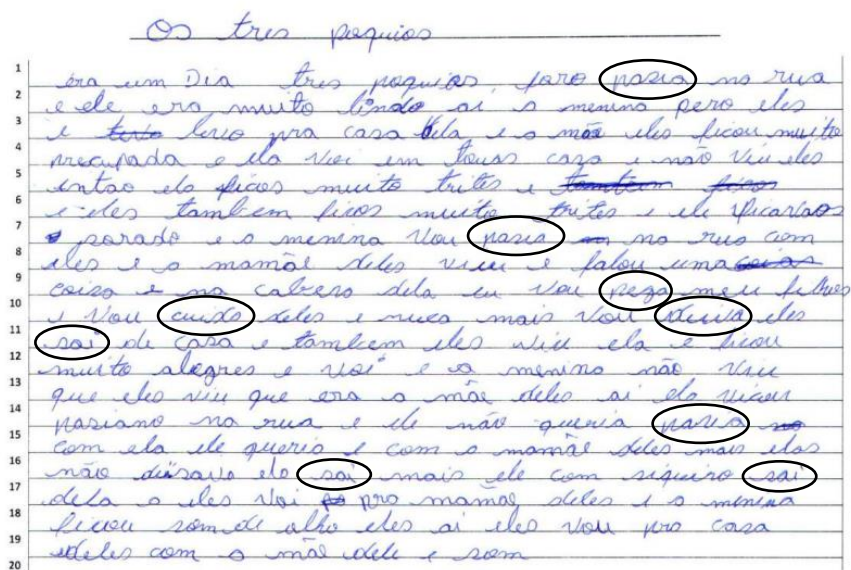 Os tres poquios
1 era um Dia tres poquios, foro pasia na rua
2 e ele era muito lindo ai a menina pero eles
3 e levo pra casa dela e a mãe eles ficou muito
4 precupada e ela voi em touas caza e não viu eles
5 intao ela ficos muito trites e tambem ficos
6 e eles tambem ficos muito trites e ele
7 parado e a menina vou pasia na rua com
8 eles e a mamãe deles viu e falou uma coisa
9 coiza e na cabesa dela eu vou pega meu filhos
10 e vou cuida deles e nuca mais vou deixa eles
11 sai de casa e tambem eles viu ela e ficou
12 muito alegres e voi e a menina não viu
13 que eles viu que era a mãe deles ai ela vicou
14 pasiano na rua e ele não queria pasia no
15 com ela ele queria e com a mamãe deles mais elas
16 não dixava ela sai mais ele com siguiro sai
17 dela a eles voi pro mamãe deles e a menina
18 ficou som de olho eles ai eles vou pra casa
19 deles com a mãe dele e som
20